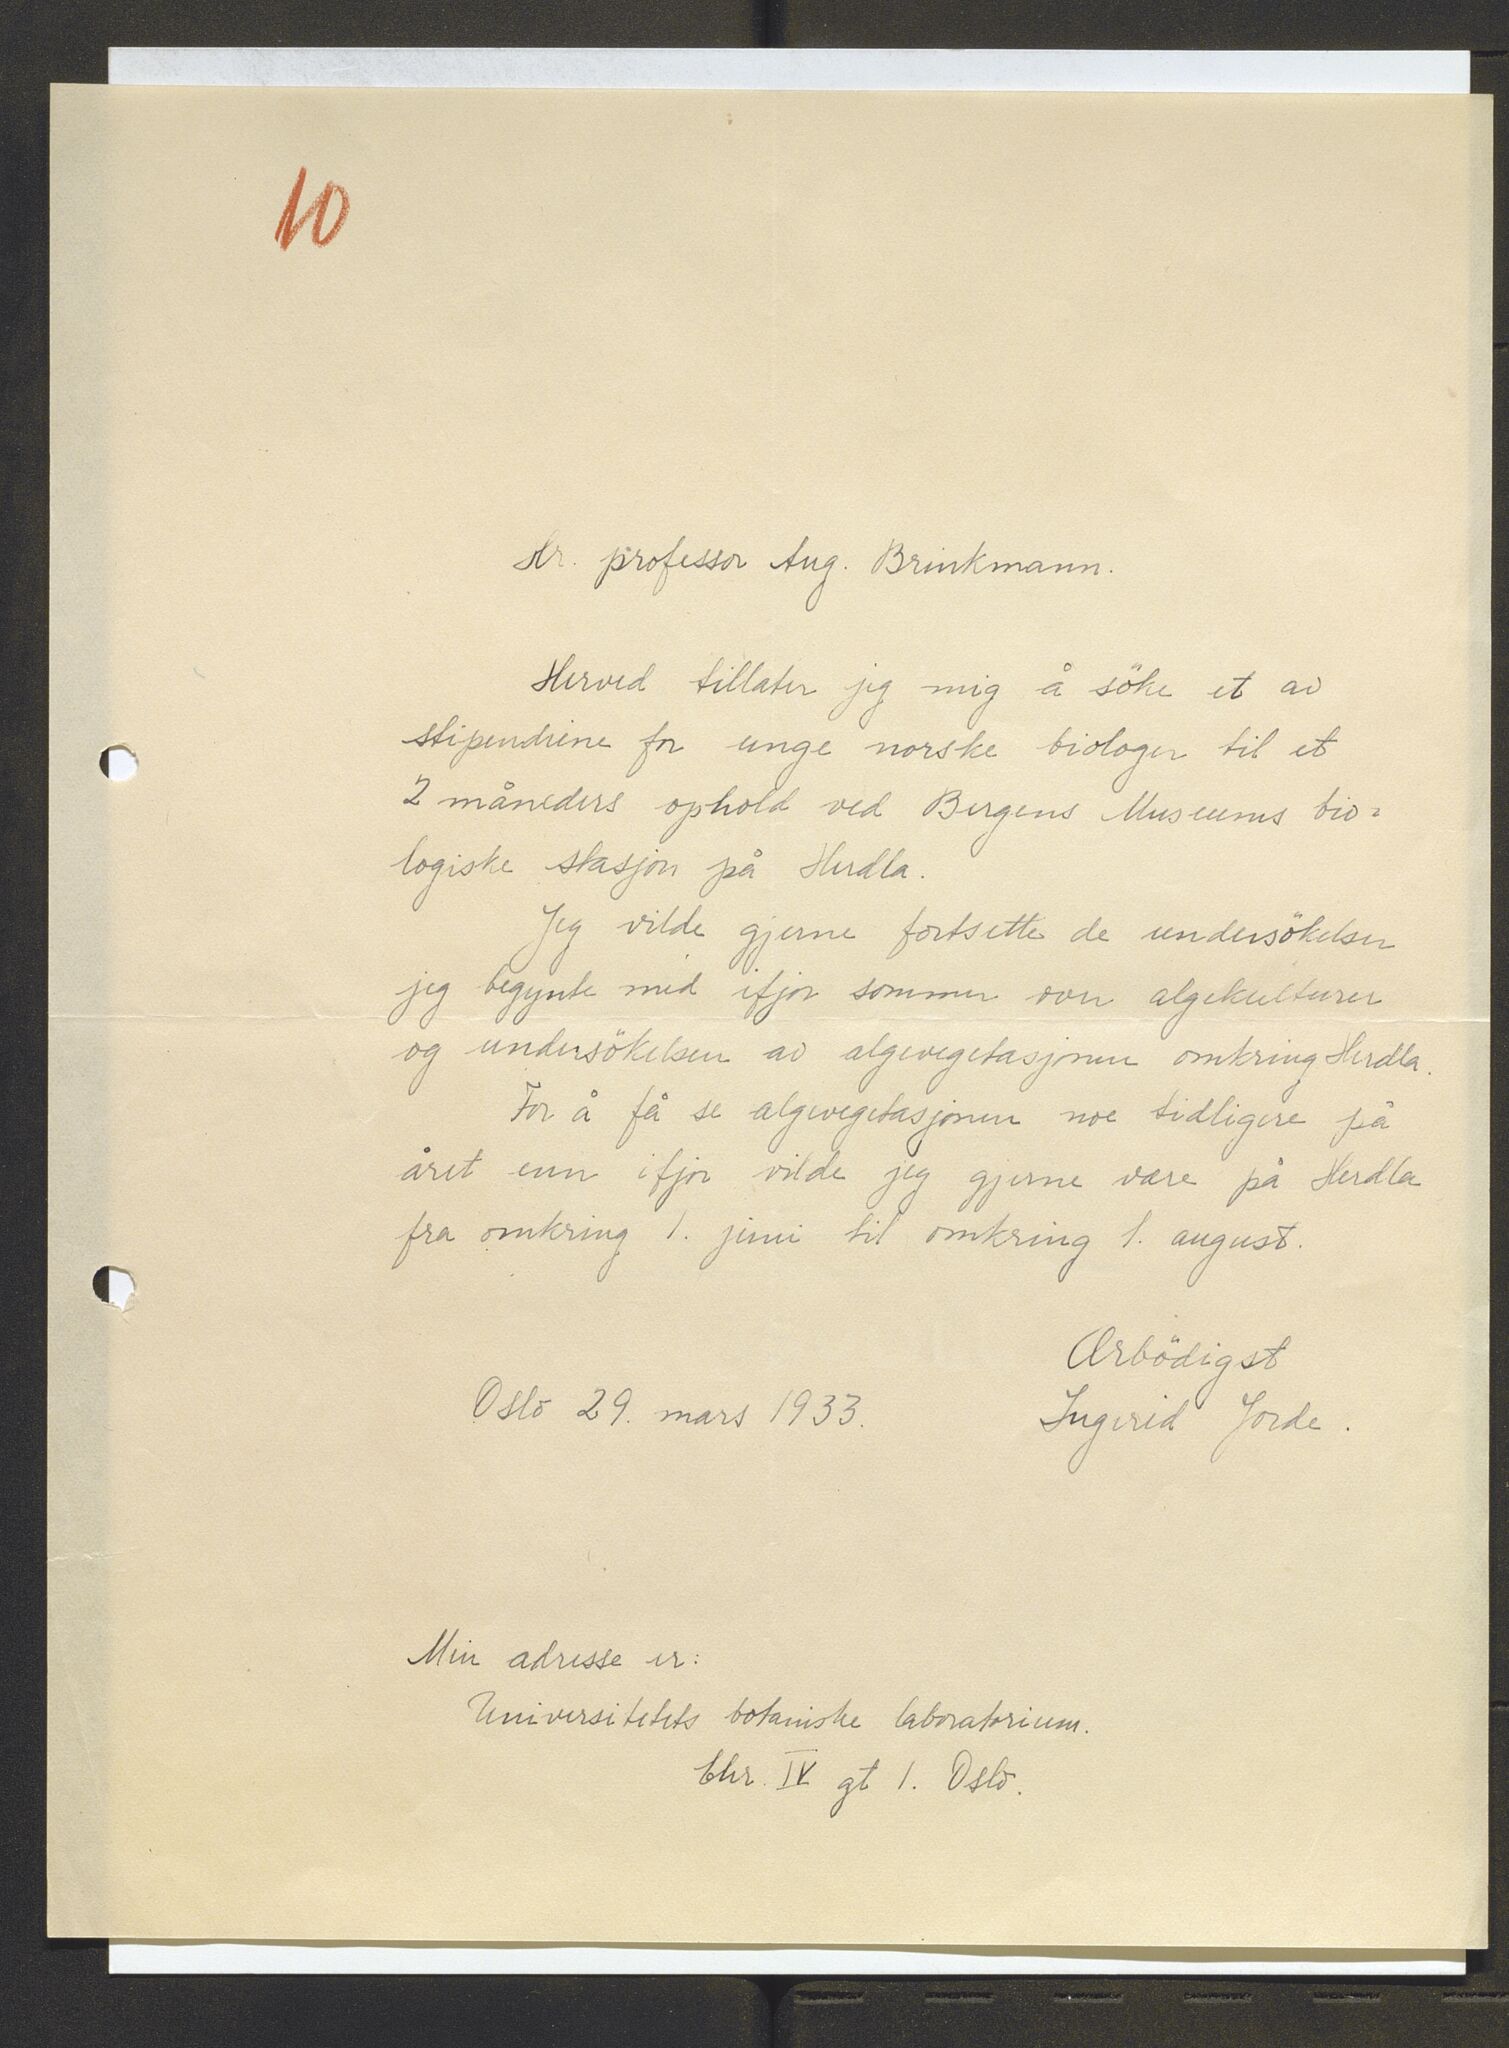 10
Hr. professor Aug. Brinkmann.
Herved tillater jeg mig å söke et av
stipendiene for unge norske biologer til et
2 måneders ophold ved Bergens Museums bio=
logiske stasjon på Herdla.
Jeg vilde gjerne fortsette de undersökelser
jeg begynte med ifjor sommer over algekulturer
og undersökelsen av algevegetasjonen omkring Herdla.
For å få se algevegetasjonen noe tidligere på
året enn ifjor vilde jeg gjerne være på Herdla
fra omkring 1. juni til omkring 1. august.
Ærbödigst
Oslo 29. mars 1933. Ingerid Jorde.
Min adresse er:
Universitetets botaniske laboratorium.
Chr. IV gt 1. Oslo.